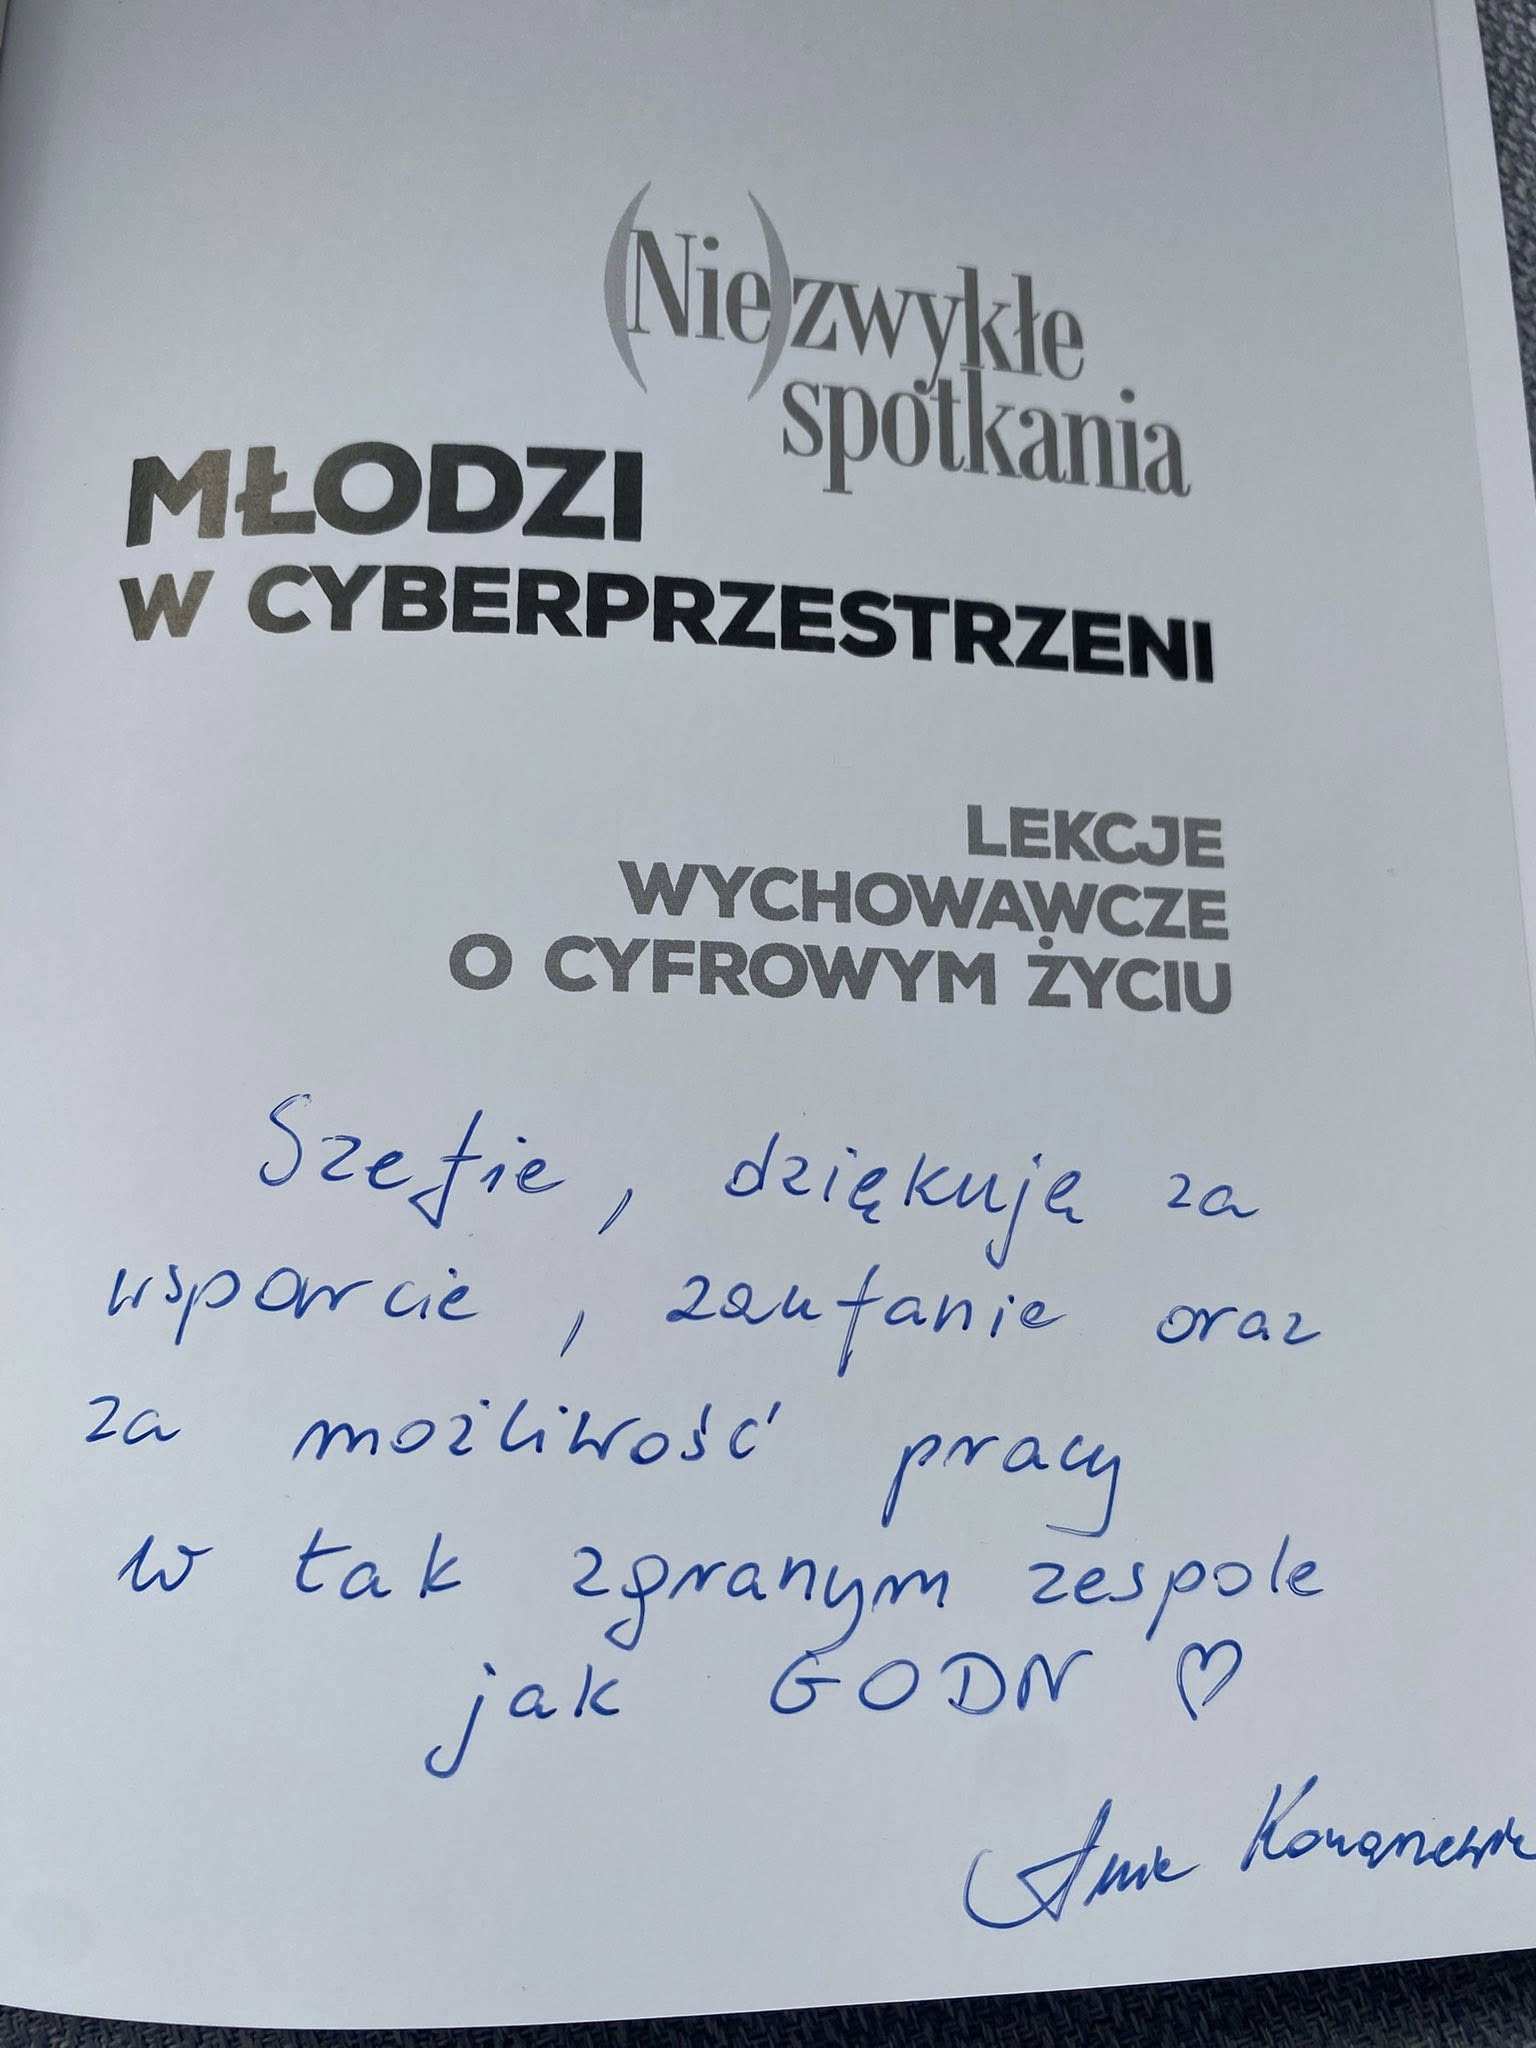 (Nie)zwykłe
spotkania
MŁODZI
W CYBERPRZESTRZENI
LEKCJE
WYCHOWAWCZE
O CYFROWYM ŻYCIU
Szefie, dziękuję za
wsparcie, zaufanie oraz
za możliwość pracy
w tak zgranym zespole
jak GODN ♡